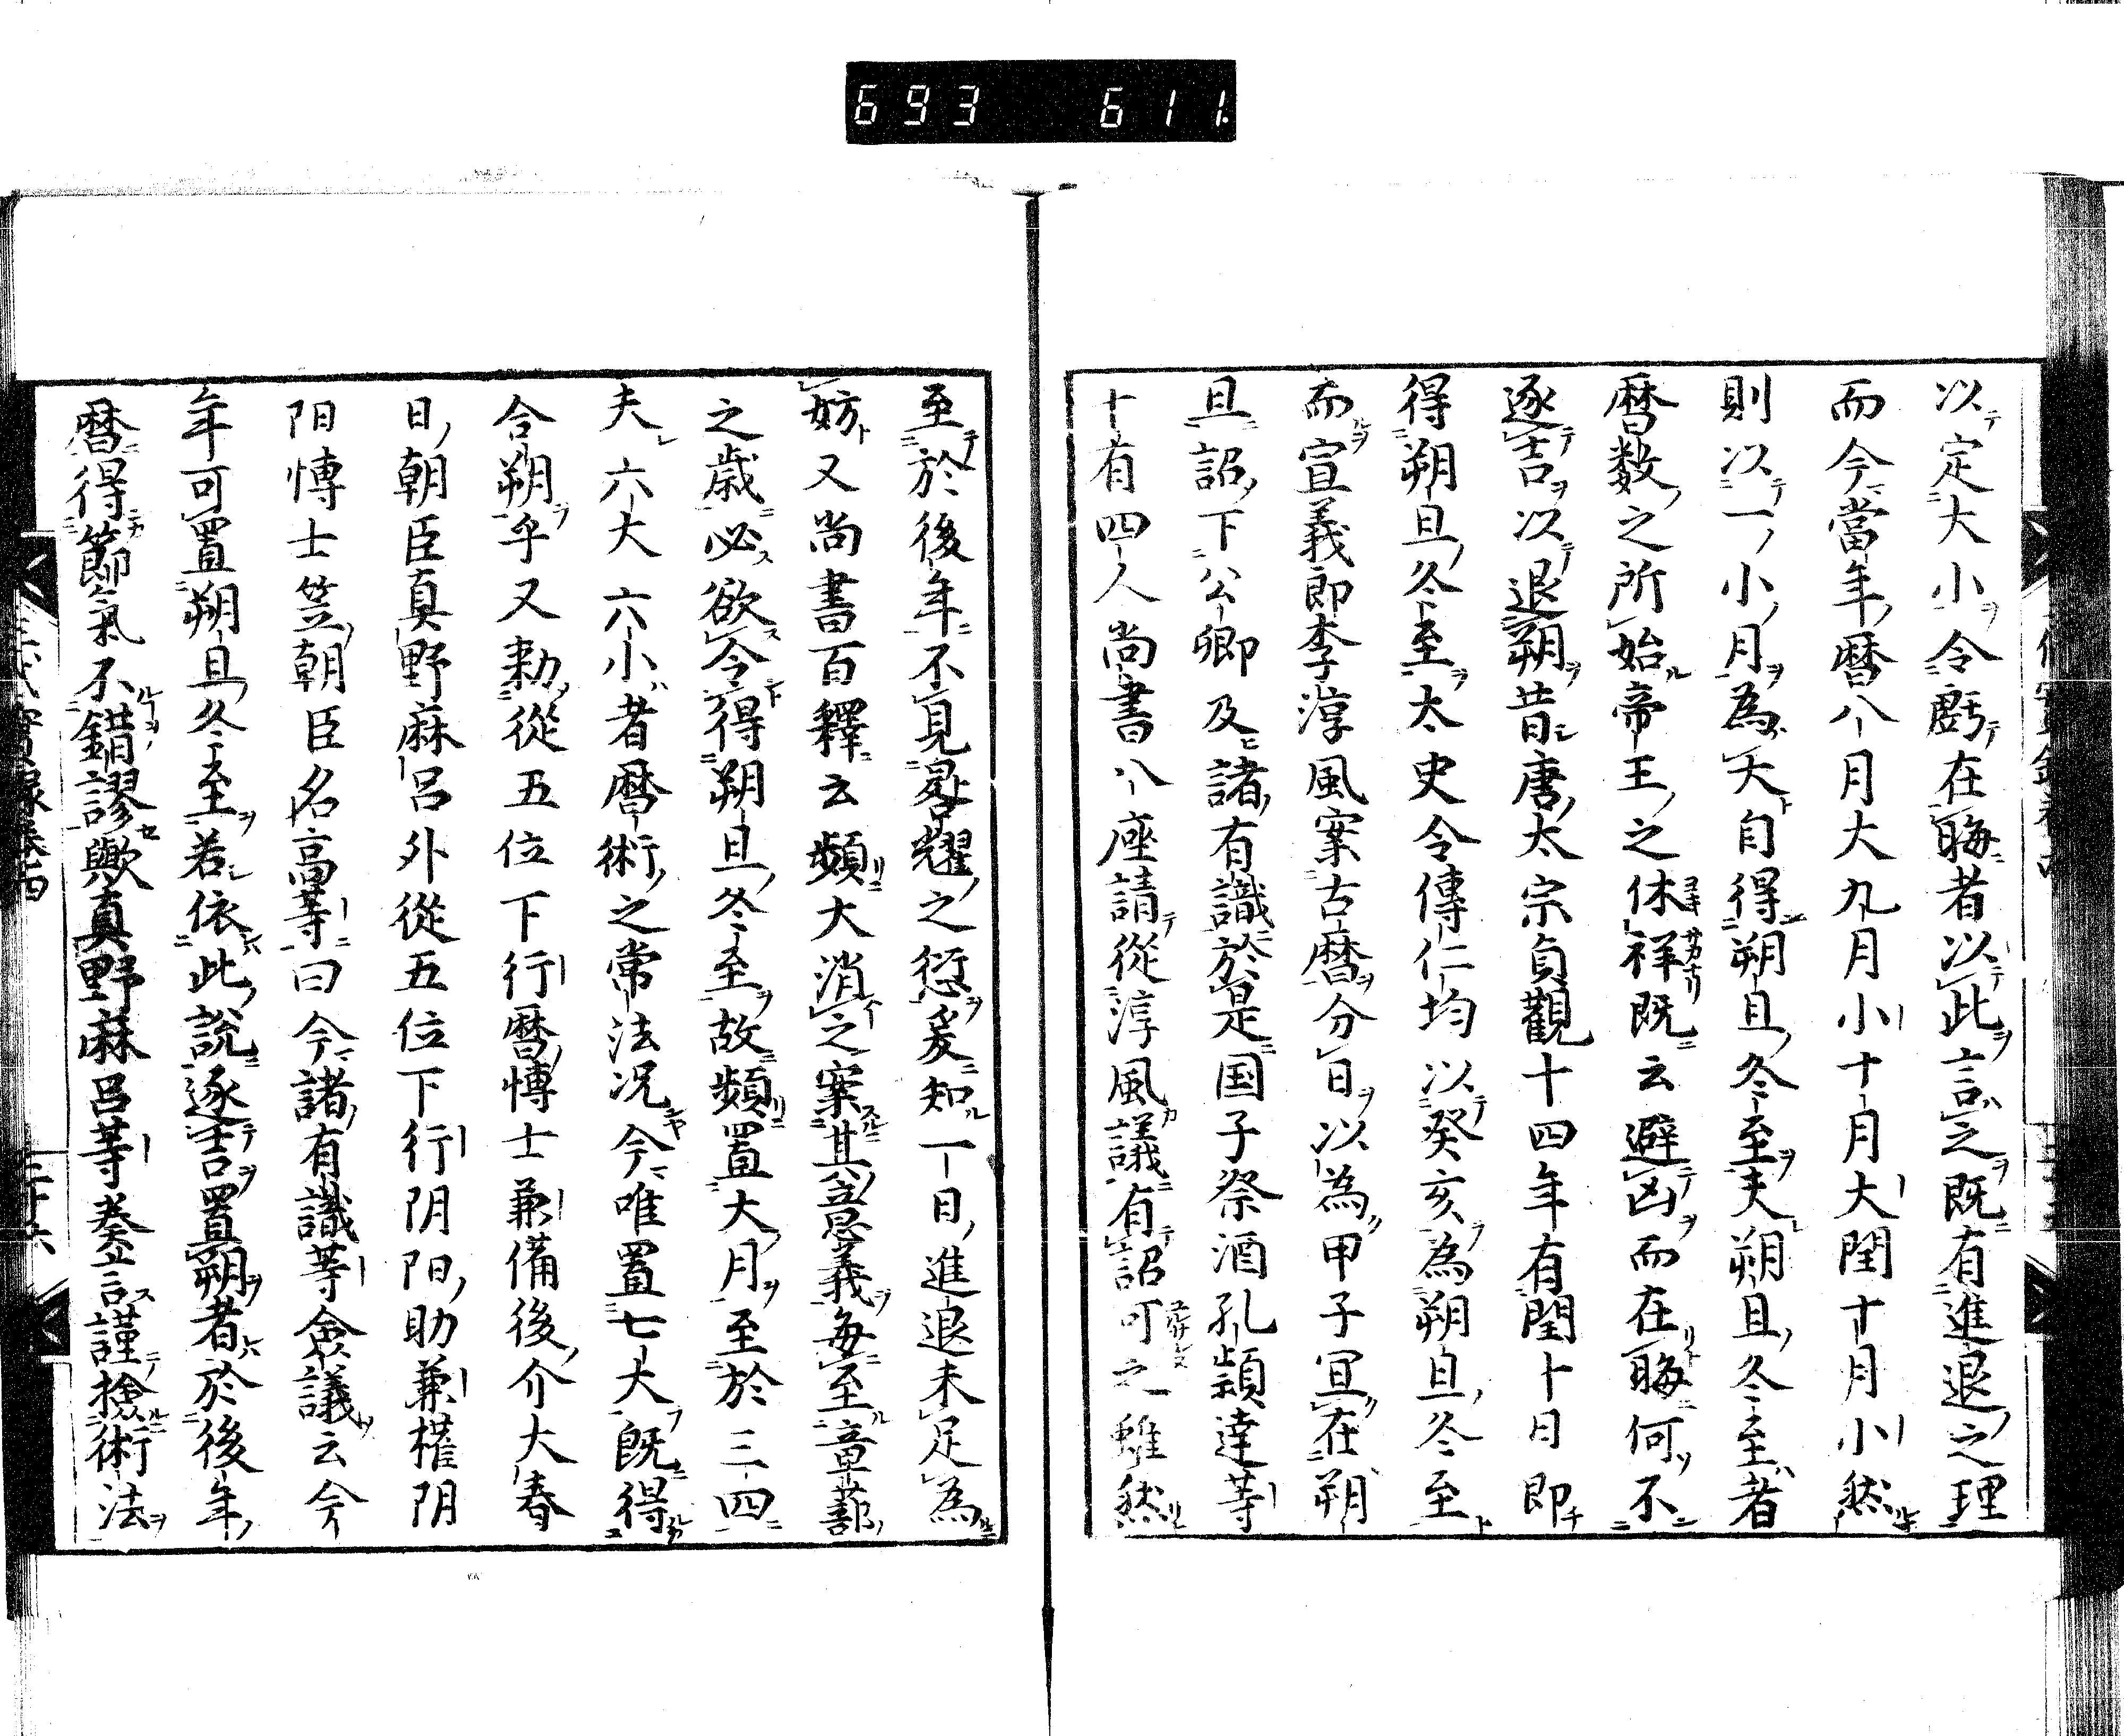 693 611
以定大小令虧在晦者以此言之既有進退之理
而今當年曆八月大九月小十月大閏十月小然
則以一小月為大自得朔旦冬至夫朔旦冬至者
曆数之所始帝王之休祥既云避凶而在晦何不
逐吉以退朔昔唐太宗貞觀十四年有閏十日即
得朔旦冬至太史令傅仁均以癸亥為朔旦冬至
而宣義郎李淳風案古曆分日以為甲子宜在朔
旦詔下公卿及諸有識於是国子祭酒孔穎達等
十有四人尚書八座請從淳風議有詔可之雖然
至於後年不見晷耀之愆爰知一日進退未足為
妨又尚書百釋云頻大消之案其意義每至章蔀
之歳必欲令得朔旦冬至故頻置大月至於三四
夫六大六小者曆術之常法况今唯置七大既得
合朔乎又勅從五位下行曆愽士兼備後介大春
日朝臣真野麻呂外從五位下行阴阳助兼権阴
阳愽士笠朝臣名高等曰今諸有識等僉議云今
年可置朔旦冬至若依此說逐吉置朔者於後年
曆得節氣不錯謬歟真野麻呂等奏言謹撿術法